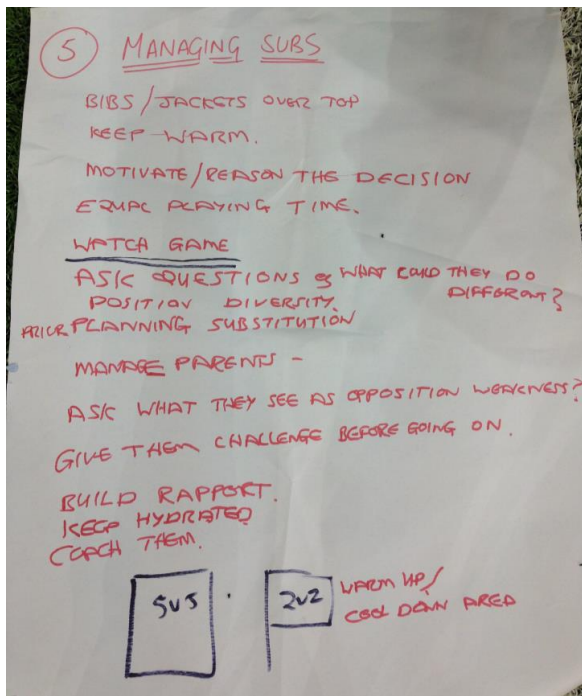 5 MANAGING SUBS
BIBS/JACKETS OVER TOP
KEEP WARM.
MOTIVATE/REASON THE DECISION
EQUAL PLAYING TIME.
WATCH GAME
ASK QUESTIONS & WHAT COULD THEY DO DIFFERENT?
POSITION DIVERSITY.
PRIOR PLANNING SUBSTITUTION
MANAGE PARENTS -
ASK WHAT THEY SEE AS OPPOSITION WEAKNESS?
GIVE THEM CHALLENGE BEFORE GOING ON.
BUILD RAPPORT.
KEEP HYDRATED
COACH THEM.
5v5 2v2 WARM UP/
COOL DOWN AREA